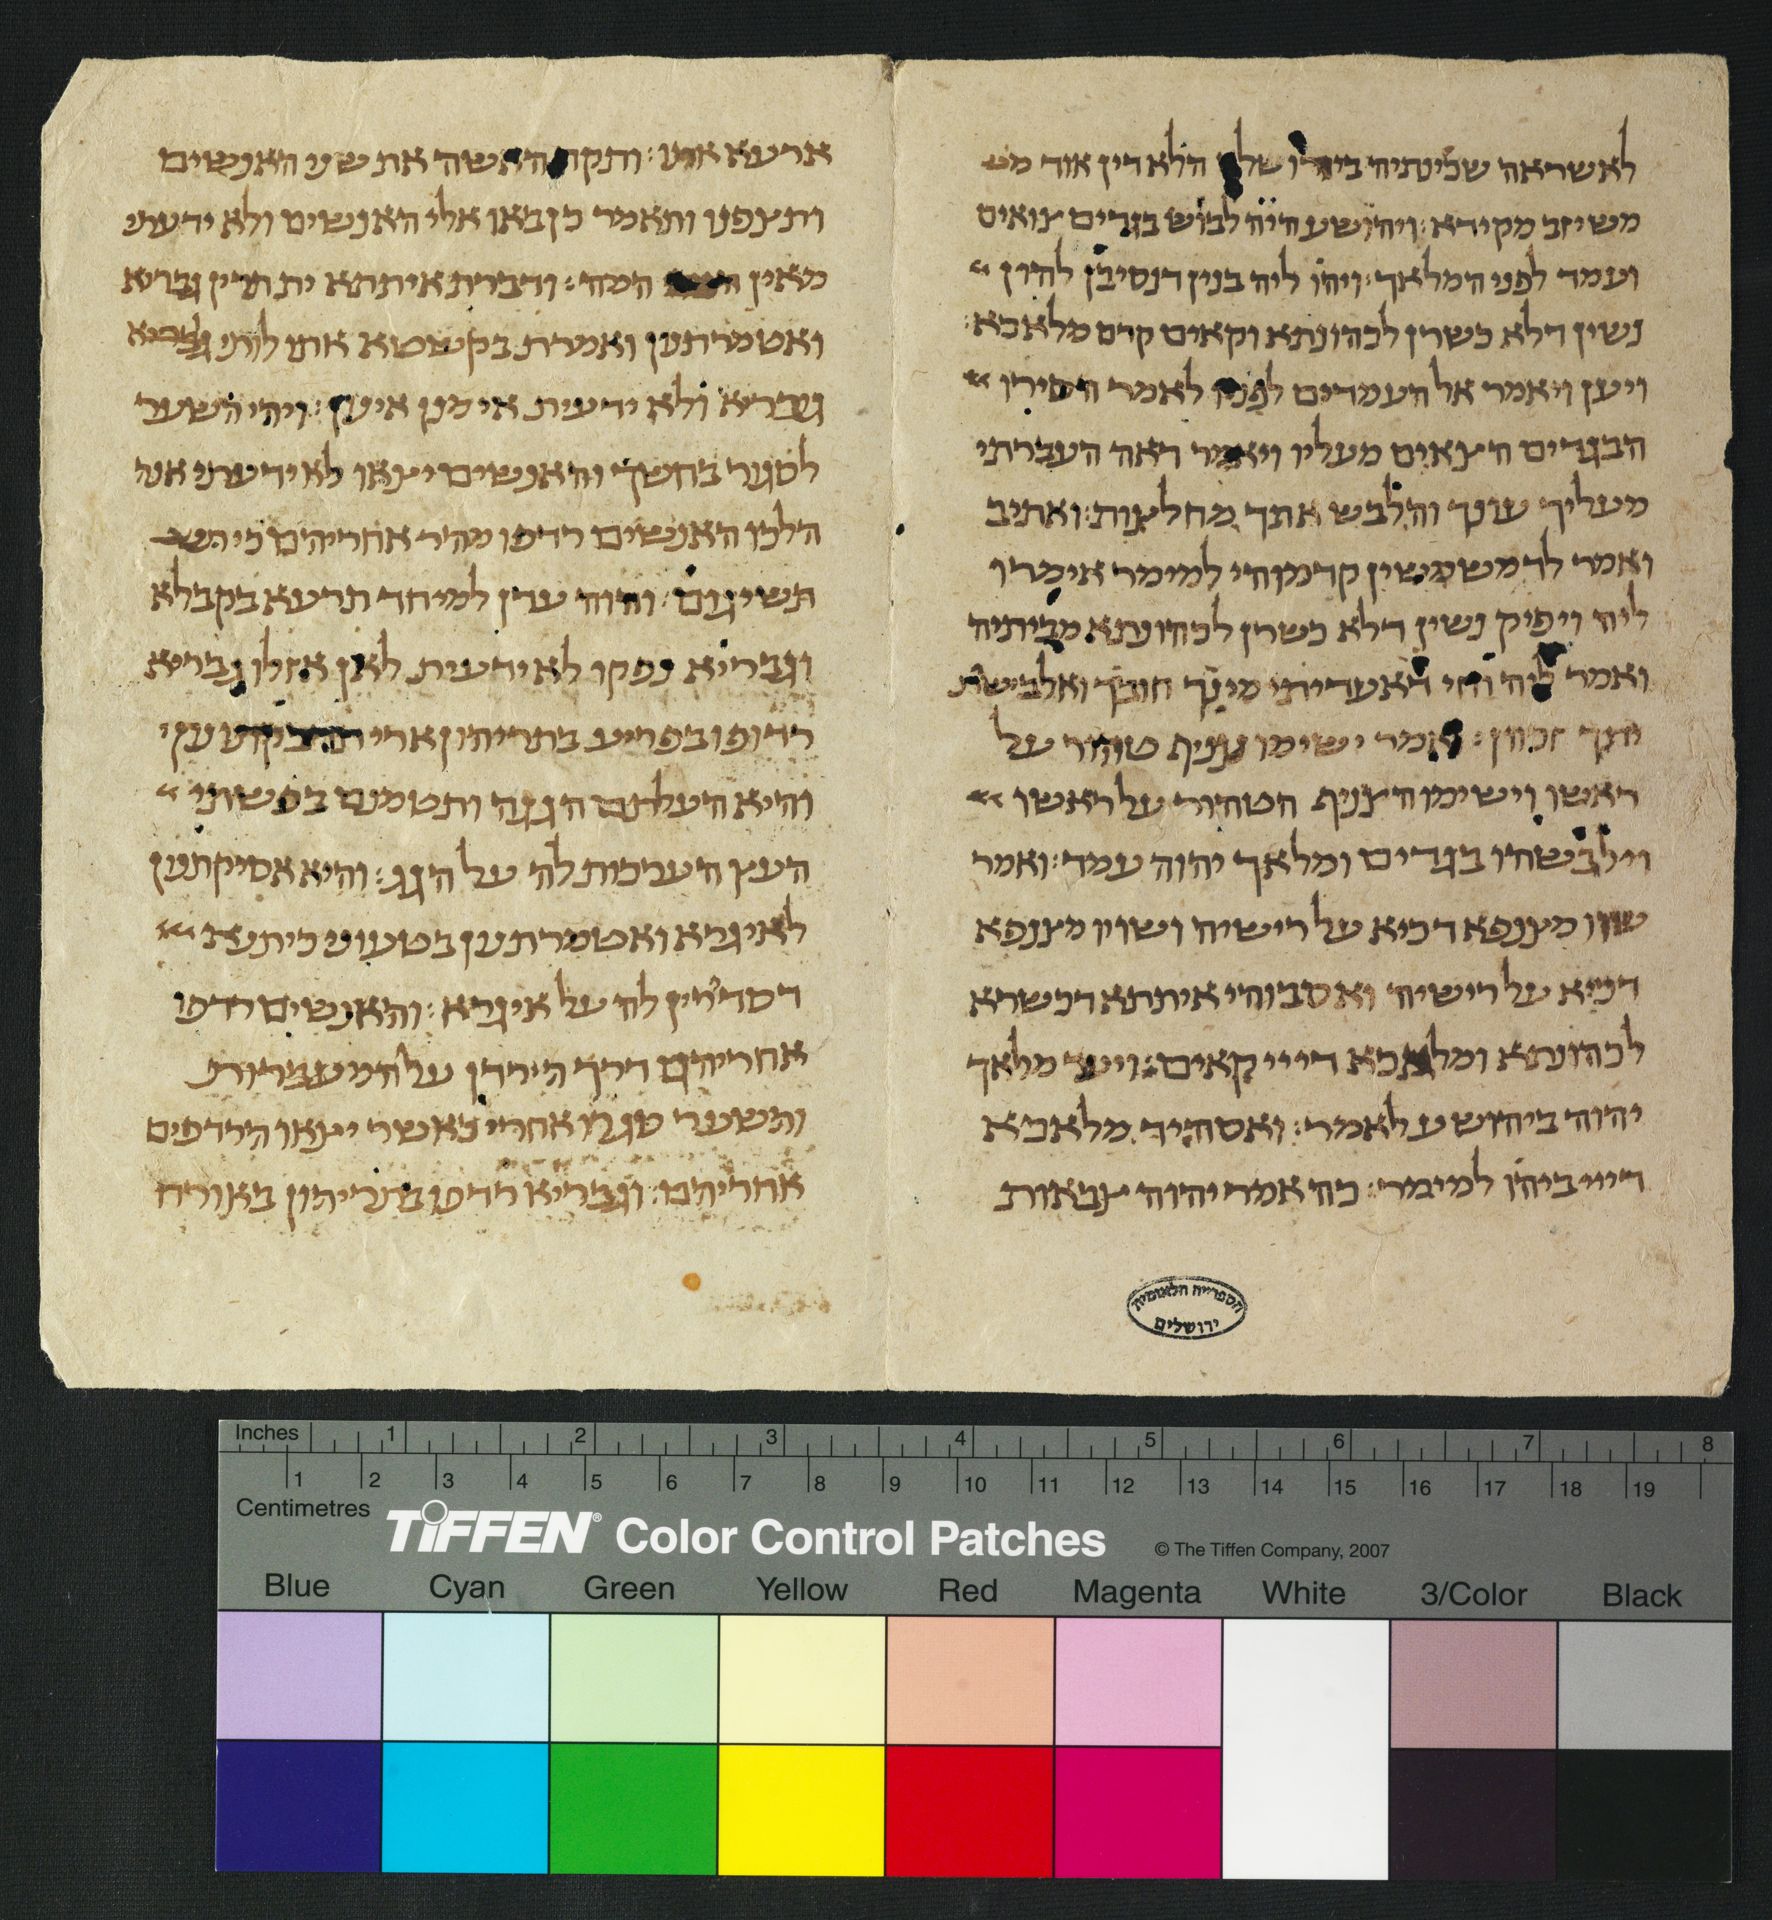 לאשראה שכינתיה בירושלם הלא דין אוד מש
משיזב מקידא : ויהושע היה לבוש בגדים צואים
ועמד לפני המלאך : ויהו ליה בנין דנסיבן להון
נשין דלא כשרן לכהונתא וקאים קדם מלאכא :
ויען ויאמר אל העמדים לפניו לאמר הסירו
הבגדים הצאים מעליו ויאמר ראה העברתי
מעליך עונך והלבש אתך מחלצות : ואתיב
ואמר לדמשמשין קדמוהי למימר אימרו
ליה ויפיק נשין דלא כשרן לכהונתא מביתיה
ואמר ליה חזי דאעדיתי מינך חובך ואלבישת
יתך זכוון : ואמר ישימו צניף טהור על
ראשו וישימו הצניף הטהור על ראשו
וילבשהו בגדים ומלאך יהוה עמד : ואמר
שוו מצנפא דכיא על רישיה ושויו מצנפא
דכיא על רישיה ואסבוהי איתתא דכשרא
לכהונתא ומלאכא דייי קאים : ויעד מלאך
יהוה ביהושע לאמר : ואסהיד מלאכא
דייי ביהו למימר : כה אמר יהוה צבאות
ארעא אתו : ותקח האשה את שני האנשים
ותצפנו ותאמר כן באו אלי האנשים ולא ידעתי
מאין המה : ודברת איתתא ית תרין גבריא
ואטמרתנון ואמרת בקשטא אתו לותי גבריא
גבריא ולא ידעית אי מנן אינון : ויהי השער
לסגור בחשך והאנשים יצאו לא ידעתי אנה
הלכו האנשים רדפו מהר אחריהם כי תש
תשיגום : והוה עדן למיחד תרעא בקבלא
וגבריא נפקו לא ידעית לאן אזלו גבריא
רדופו בפריע בתריהון ארי תדבקונון
והיא העלתם הגגה ותטמנם בפשתי
העץ הערכות לה על הגג : והיא אסיקתנון
לאיגרא ואטמרתנון בטעוני כיתנא
דסדירין לה על איגרא : והאנשים רדפו
אחריהם דרך הירדן על המעברות
והשער סגרו אחרי כאשר יצאו הרדפים
אחריהם : וגבריא רדפו בתריהון באורח
הספרייה הלאומית
ירושלים
Inches 1 2 3 4 5 6 7 8
1 2 3 4 5 6 7 8 9 10 11 12 13 14 15 16 17 18 19
Centimetres
TIFFEN® Color Control Patches © The Tiffen Company, 2007
Blue Cyan Green Yellow Red Magenta White 3/Color Black